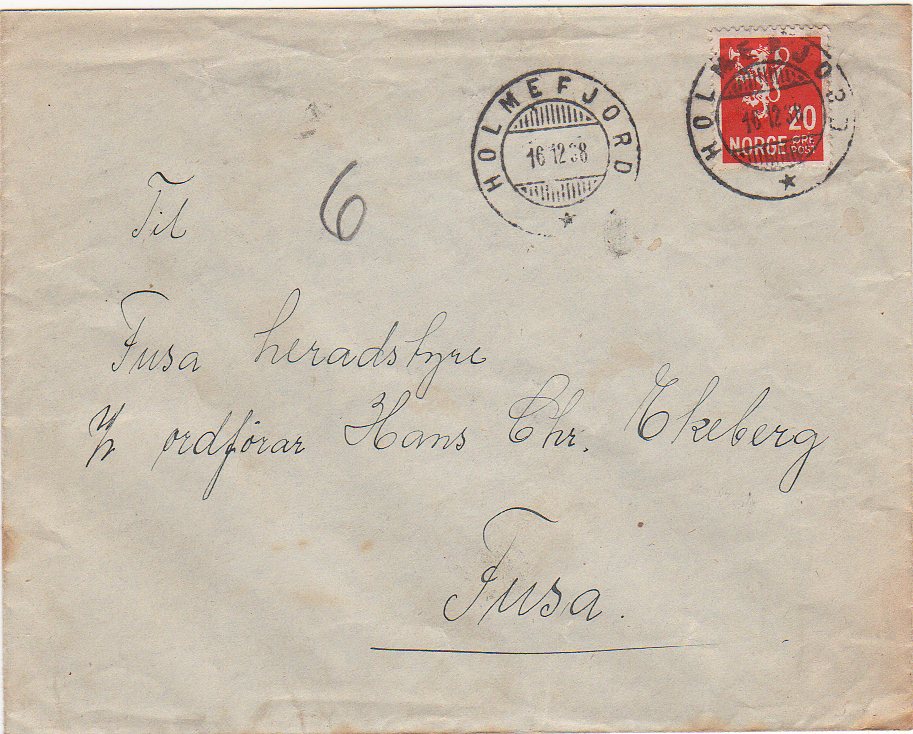 HOLMEFJORD
16 12 38
HOLMEFJORD
16 12 38
20
NORGE ØRE POST
6
Til
Fusa heradstyre
v/ ordførar Hans Chr. Ekeberg
Fusa.